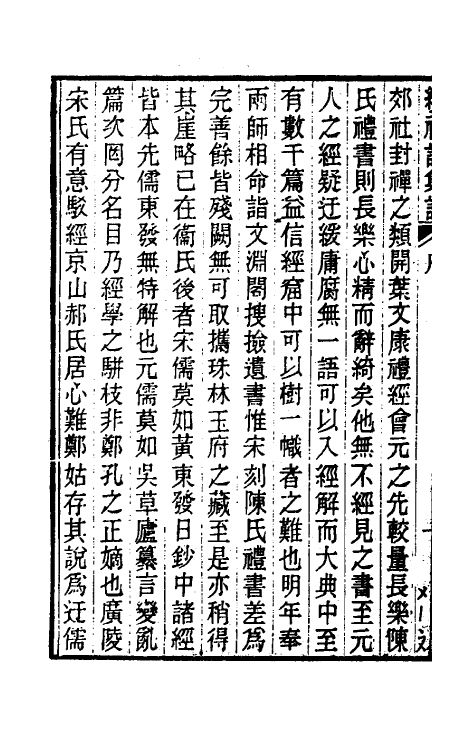 郊社封禪之類開葉文康禮經會元之先較量長樂陳
氏禮書則長樂心精而辭綺矣他無不經見之書至元
人之經疑迂緩庸腐無一語可以入經解而大典中至
有數千篇益信經窟中可以樹一幟者之難也明年奉
兩師相命詣文淵閣搜撿遺書惟宋刻陳氏禮書差為
完善餘皆殘闕無可取攜珠林玉府之藏至是亦稍得
其崖略已在衞氏後者宋儒莫如黃東發日鈔中諸經
皆本先儒東發無特解也元儒莫如吳草廬纂言變亂
篇次罔分名目乃經學之駢枝非鄭孔之正嫡也廣陵
宋氏有意駁經京山郝氏居心難鄭姑存其說為迂儒